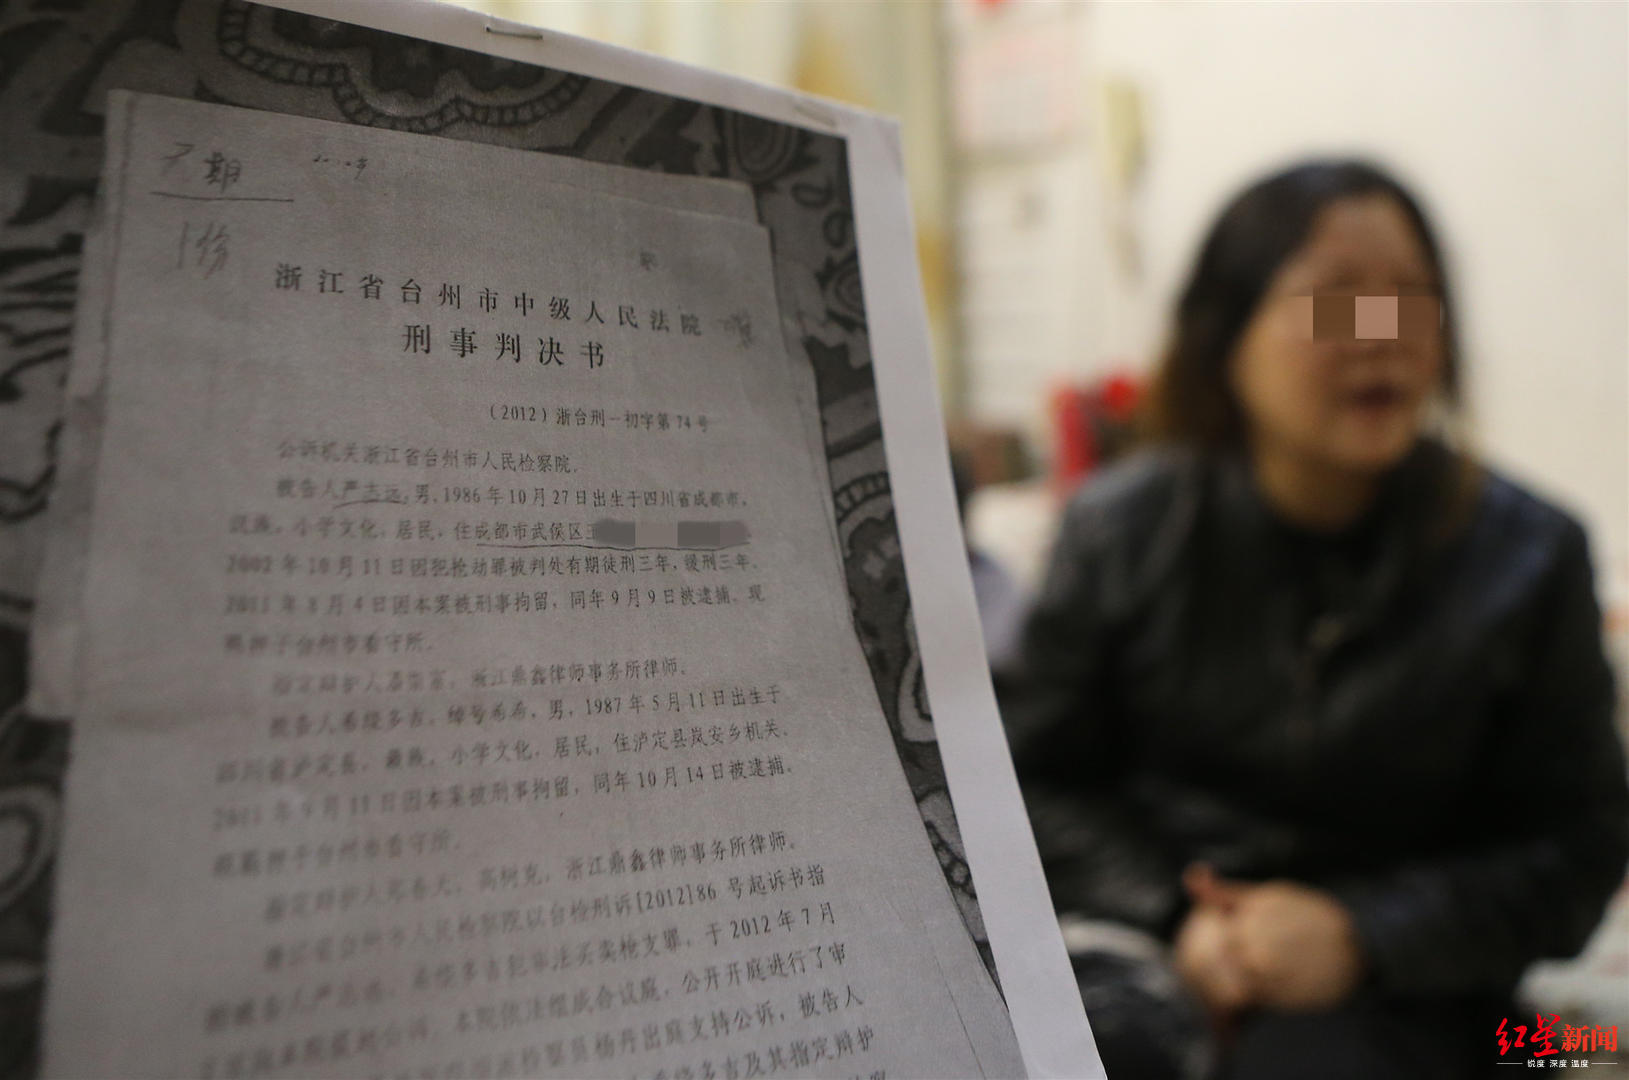 期
1份
浙江省台州市中级人民法院
刑事判决书
（2012）浙台刑一初字第74号
公诉机关浙江省台州市人民检察院。
被告人严志远，男，1986年10月27日出生于四川省成都市，
汉族，小学文化，居民，住成都市武侯区
2002年10月11日因犯抢劫罪被判处有期徒刑三年，缓刑三年。
2011年8月4日因本案被刑事拘留，同年9月9日被逮捕。现
羁押于台州市看守所。
指定辩护人，浙江鼎鑫律师事务所律师。
被告人希绕多吉，绰号希希，男，1987年5月11日出生于
四川省泸定县，藏族，小学文化，居民，住泸定县岚安乡机关。
2011年9月11日因本案被刑事拘留，同年10月14日被逮捕。
现羁押于台州市看守所。
指定辩护人、高树克，浙江鼎鑫律师事务所律师。
浙江省台州市人民检察院以台检刑诉[2012]86号起诉书指
控被告人严志远、希绕多吉犯非法买卖枪支罪，于2012年7月
本院依法组成合议庭，公开开庭进行了审
检察员杨丹出庭支持公诉，被告人
希绕多吉及其指定辩护
红星新闻
锐度 深度 温度